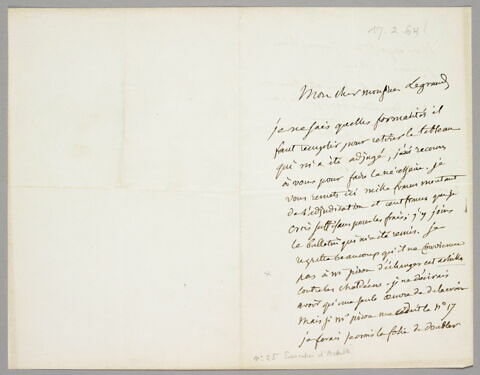 17.2.64
Mon cher monsieur Legrand
je ne sais quelles formalités il
faut remplir pour retirer le tableau
qui m'a été adjugé, j'ai recours
à vous pour faire le nécessaire. je
vous remets ici mille francs montant
de l'adjudication et cent francs que je
crois suffisans pour les frais; j'y joins
le bulletin qui m'a été remis. Je
regrette beaucoup qu'il ne convienne
pas à mr piron d'échanger cet achille
contre les chaldéens. je ne désirais
avoir qu'une seule œuvre de delacroix
mais si mr piron me cédait le n° 17
je ferais je crois la folie de doubler
n° 25 Education d'Achille